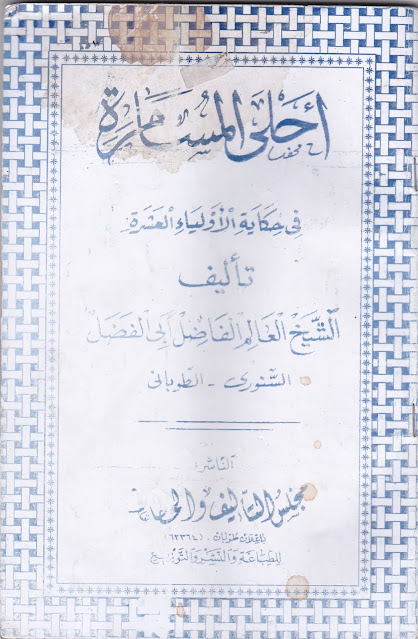 أحلى المسامرة
فى حكاية الأولياء العشرة
تأليف
الشيخ العالم الفاضل أبى الفضل
السنورى - الطوبانى
الناشر:
مجلس التأليف
طوبان . (٦٢٣٦٤)
للطباعة والنشر والتوزيع